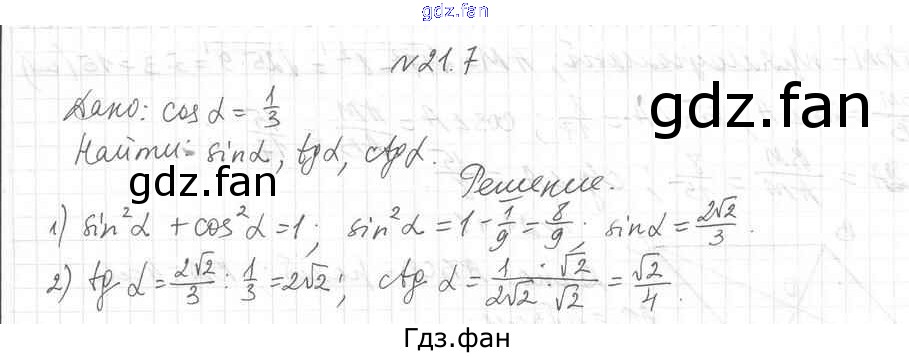 gdz.fan
№21.7
Дано: cos α = 1/3
Найти: sinα, tgα, ctgα.
gdz.fan
gdz.fan
Решение.
1) sin²α + cos²α = 1; sin²α = 1 - 1/9 = 8/9; sinα = 2√2/3.
2) tg α = 2√2/3 : 1/3 = 2√2; ctg α = 1·√2/2√2·√2 = √2/4.
Гдз.фан